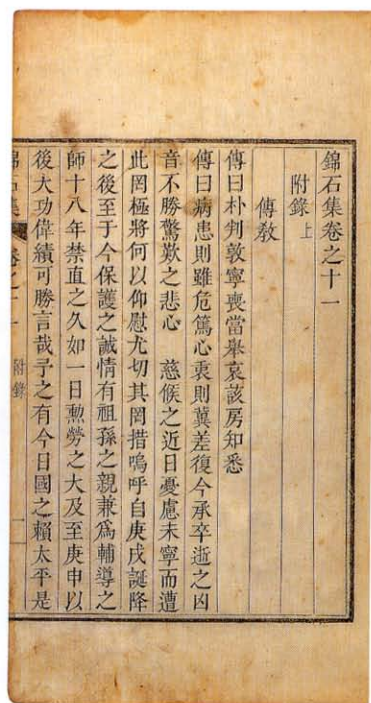 錦石集卷之十一
附錄上
傳敎
傳曰朴判敦寧喪當舉哀該房知悉
傳曰病患則雖危篤心裏則冀差復今承卒逝之凶
音不勝驚歎之悲心 慈候之近日憂慮未寧而遭
此罔極將何以仰慰尤切其罔措嗚呼自庚戌誕降
之後至于今保護之誠情有祖孫之親兼爲輔導之
師十八年禁直之久如一日勲勞之大及至庚申以
後大功偉績可勝言哉予之有今日國之賴太平是
錦石集 卷之十一 附錄 一